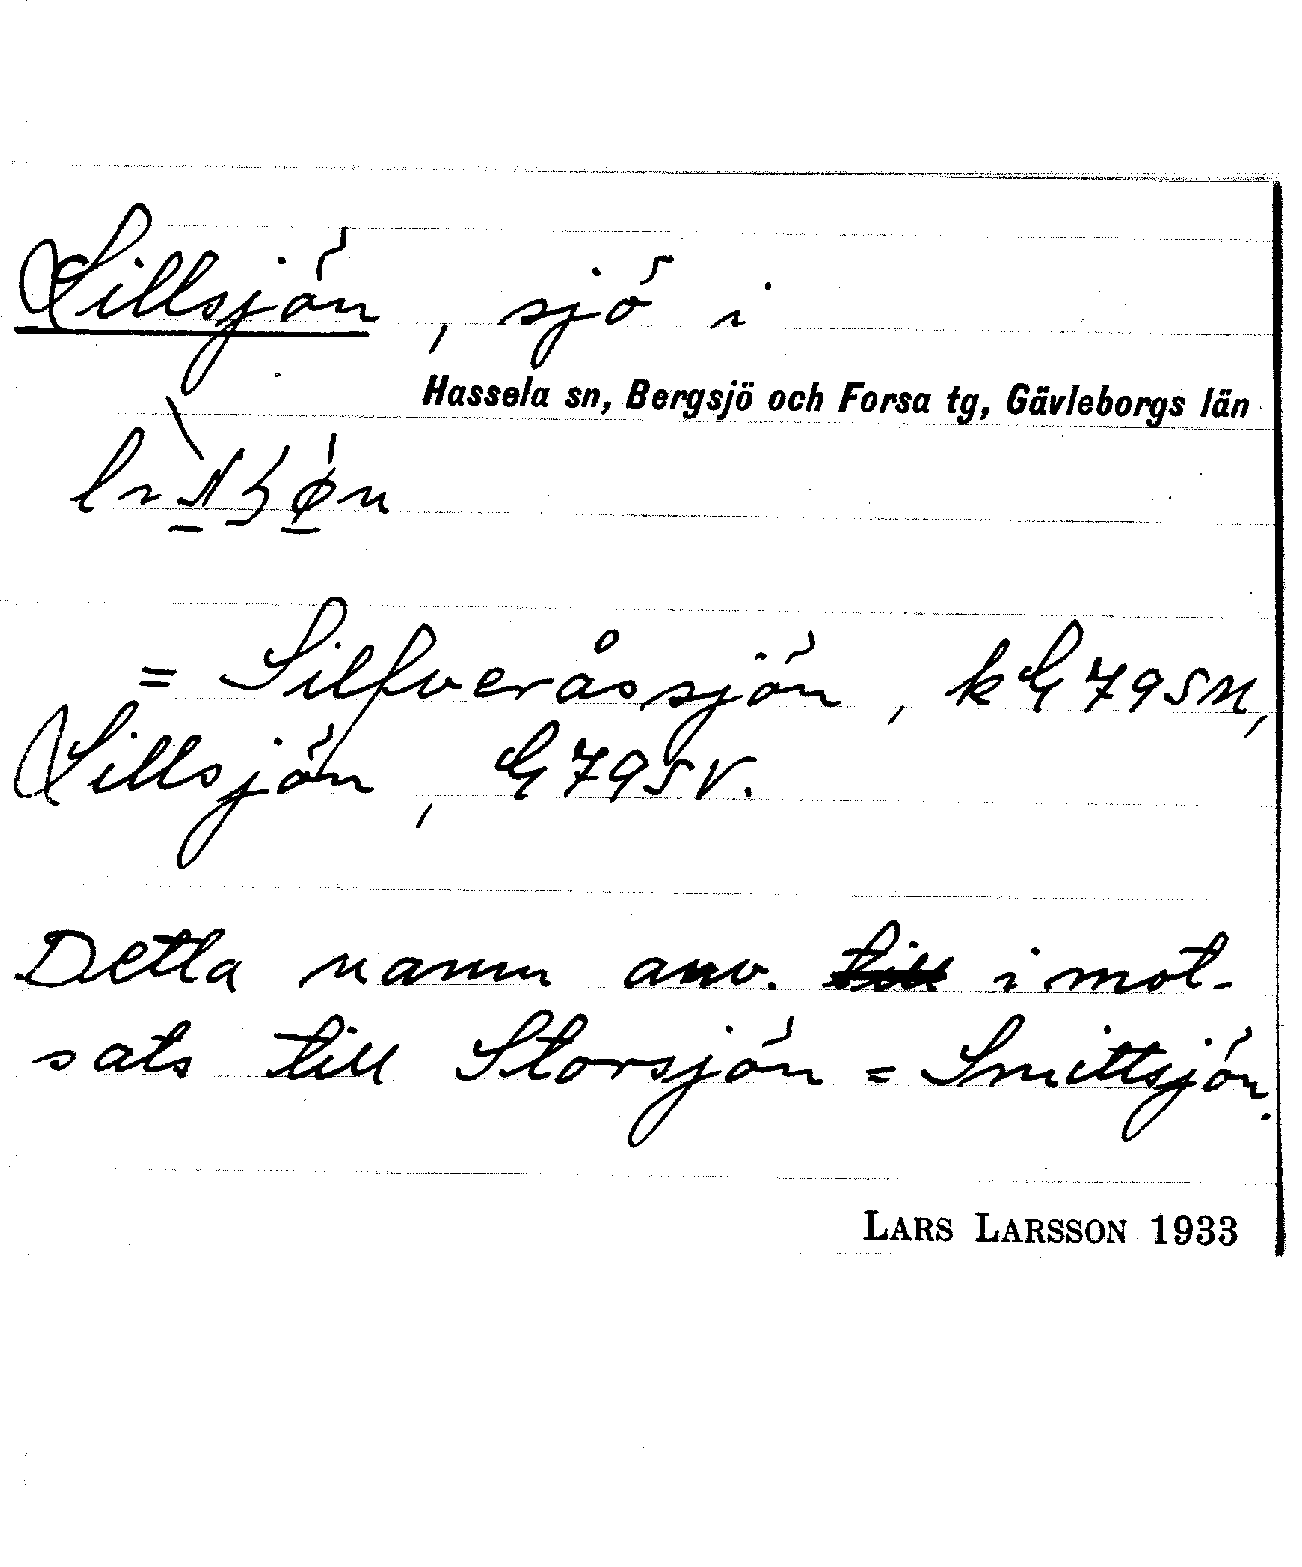 Lillsjön, sjö i
Hassela sn, Bergsjö och Forsa tg, Gävleborgs län
= Silfveråssjön, kG795N,
Lillsjön, G795V.
Detta namn anv. i mot-
sats till Storsjön = Smittsjön.
LARS LARSSON 1933